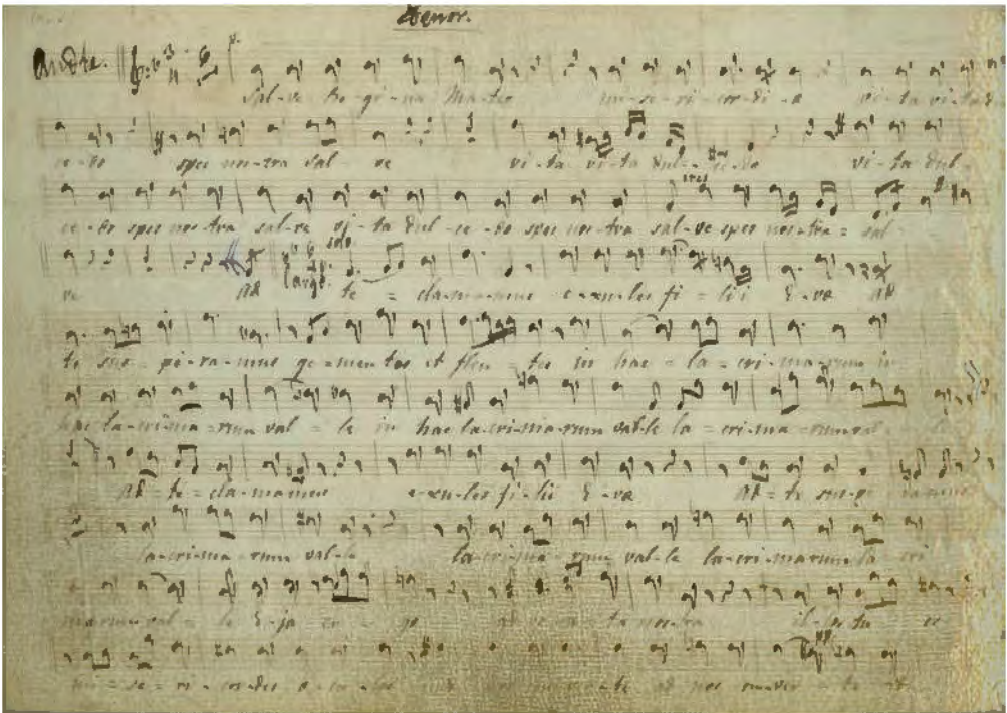 Tenor.
Andte.
Sal-ve Re-gi-na Ma-ter mi-se-ri-cor-di-a vi-ta vi-ta d
ce-do spes nos-tra sal-ve vi-ta vi-ta dul-ce-do vi-ta dul-
ce-do spes nos-tra sal-ve vi-ta dul-ce-do spes nos-tra sal-ve spes nos-tra = sal-
ve Ad Largo. solo te = cla-ma-mus e-xu-les fi = lii E-va Ad
te sus = pi-ra-mus ge = men-tes et flen = tes in hac = la = cri-ma-rum in
hac la-cri-ma = rum val = le in hac la-cri-ma-rum val-le la = cri-ma = rum val
Ad = te = cla-mamus e-xu-les fi-lii E-va Ad = te sus-pi ramus
la-cri-ma = rum val-le la-cri-ma = rum val-le la-cri-marum la cri
marum val = le E-ja er = go ad vo ca ta nos-tra il-los tu
mi = se = ri = cor-des o-cu-los ad nos conver = te